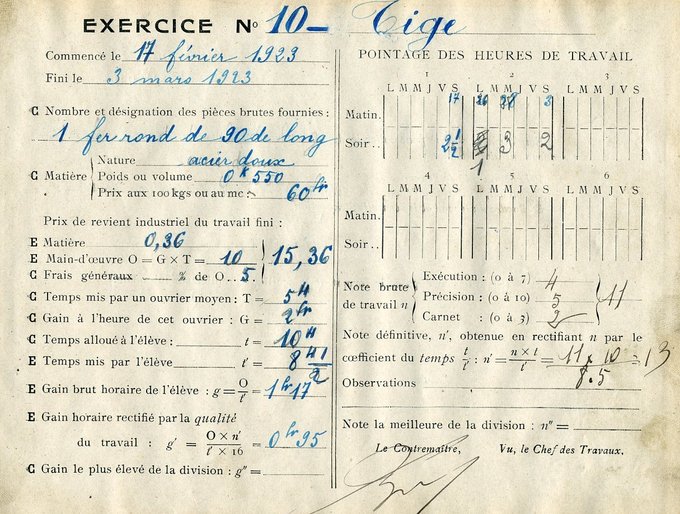 EXERCICE No 10 - Tige
Commencé le 17 février 1923
Fini le 3 mars 1923
C Nombre et désignation des pièces brutes fournies :
1 fer rond de 90 de long
Nature acier doux
C Matière Poids ou volume 0K 550
Prix aux 100 kgs ou au mc : 60 fr
Prix de revient industriel du travail fini :
E Matière 0,36
E Main-d'œuvre O = G × T = 10 15,36
C Frais généraux % de O... 5
C Temps mis par un ouvrier moyen : T = 5H
C Gain à l'heure de cet ouvrier : G = 2fr
C Temps alloué à l'élève : t = 10H
E Temps mis par l'élève t' = 8H 1/2
E Gain brut horaire de l'élève : g = O/t' = 1fr 17
E Gain horaire rectifié par la qualité
du travail : g' = O × n' / t' × 16 = 0fr 95
C Gain le plus élevé de la division : g" =
POINTAGE DES HEURES DE TRAVAIL
1 2 3
L M M J V S L M M J V S L M M J V S
17 28 3
Matin.
Soir .. 2 1/2 3 2
1
4 5 6
L M M J V S L M M J V S L M M J V S
Matin.
Soir ..
Note brute de travail n
Exécution : (0 à 7) 4
Précision : (0 à 10) 5
Carnet : (0 à 3) 2
11
Note définitive, n', obtenue en rectifiant n par le
cœfficient du temps t/t' : n' = n × t / t' = 11 × 10 / 8.5 = 13
Observations
Note la meilleure de la division : n" =
Le Contremaître, Vu, le Chef des Travaux.